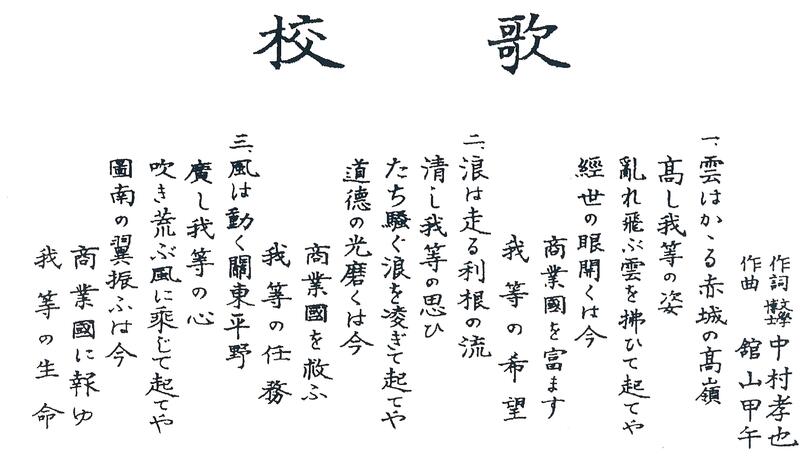 校歌
作詞 文學博士 中村孝也
作曲 舘山甲午
一、雲はかゝる赤城の高嶺
高し我等の姿
亂れ飛ぶ雲を拂ひて起てや
經世の眼開くは今
商業國を富ます
我等の希望
二、浪は走る利根の流
清し我等の思ひ
たち騷ぐ浪を凌ぎて起てや
道德の光磨くは今
商業國を救ふ
我等の任務
三、風は動く關東平野
廣し我等の心
吹き荒ぶ風に乘じて起てや
圖南の翼振ふは今
商業國に報ゆ
我等の生命